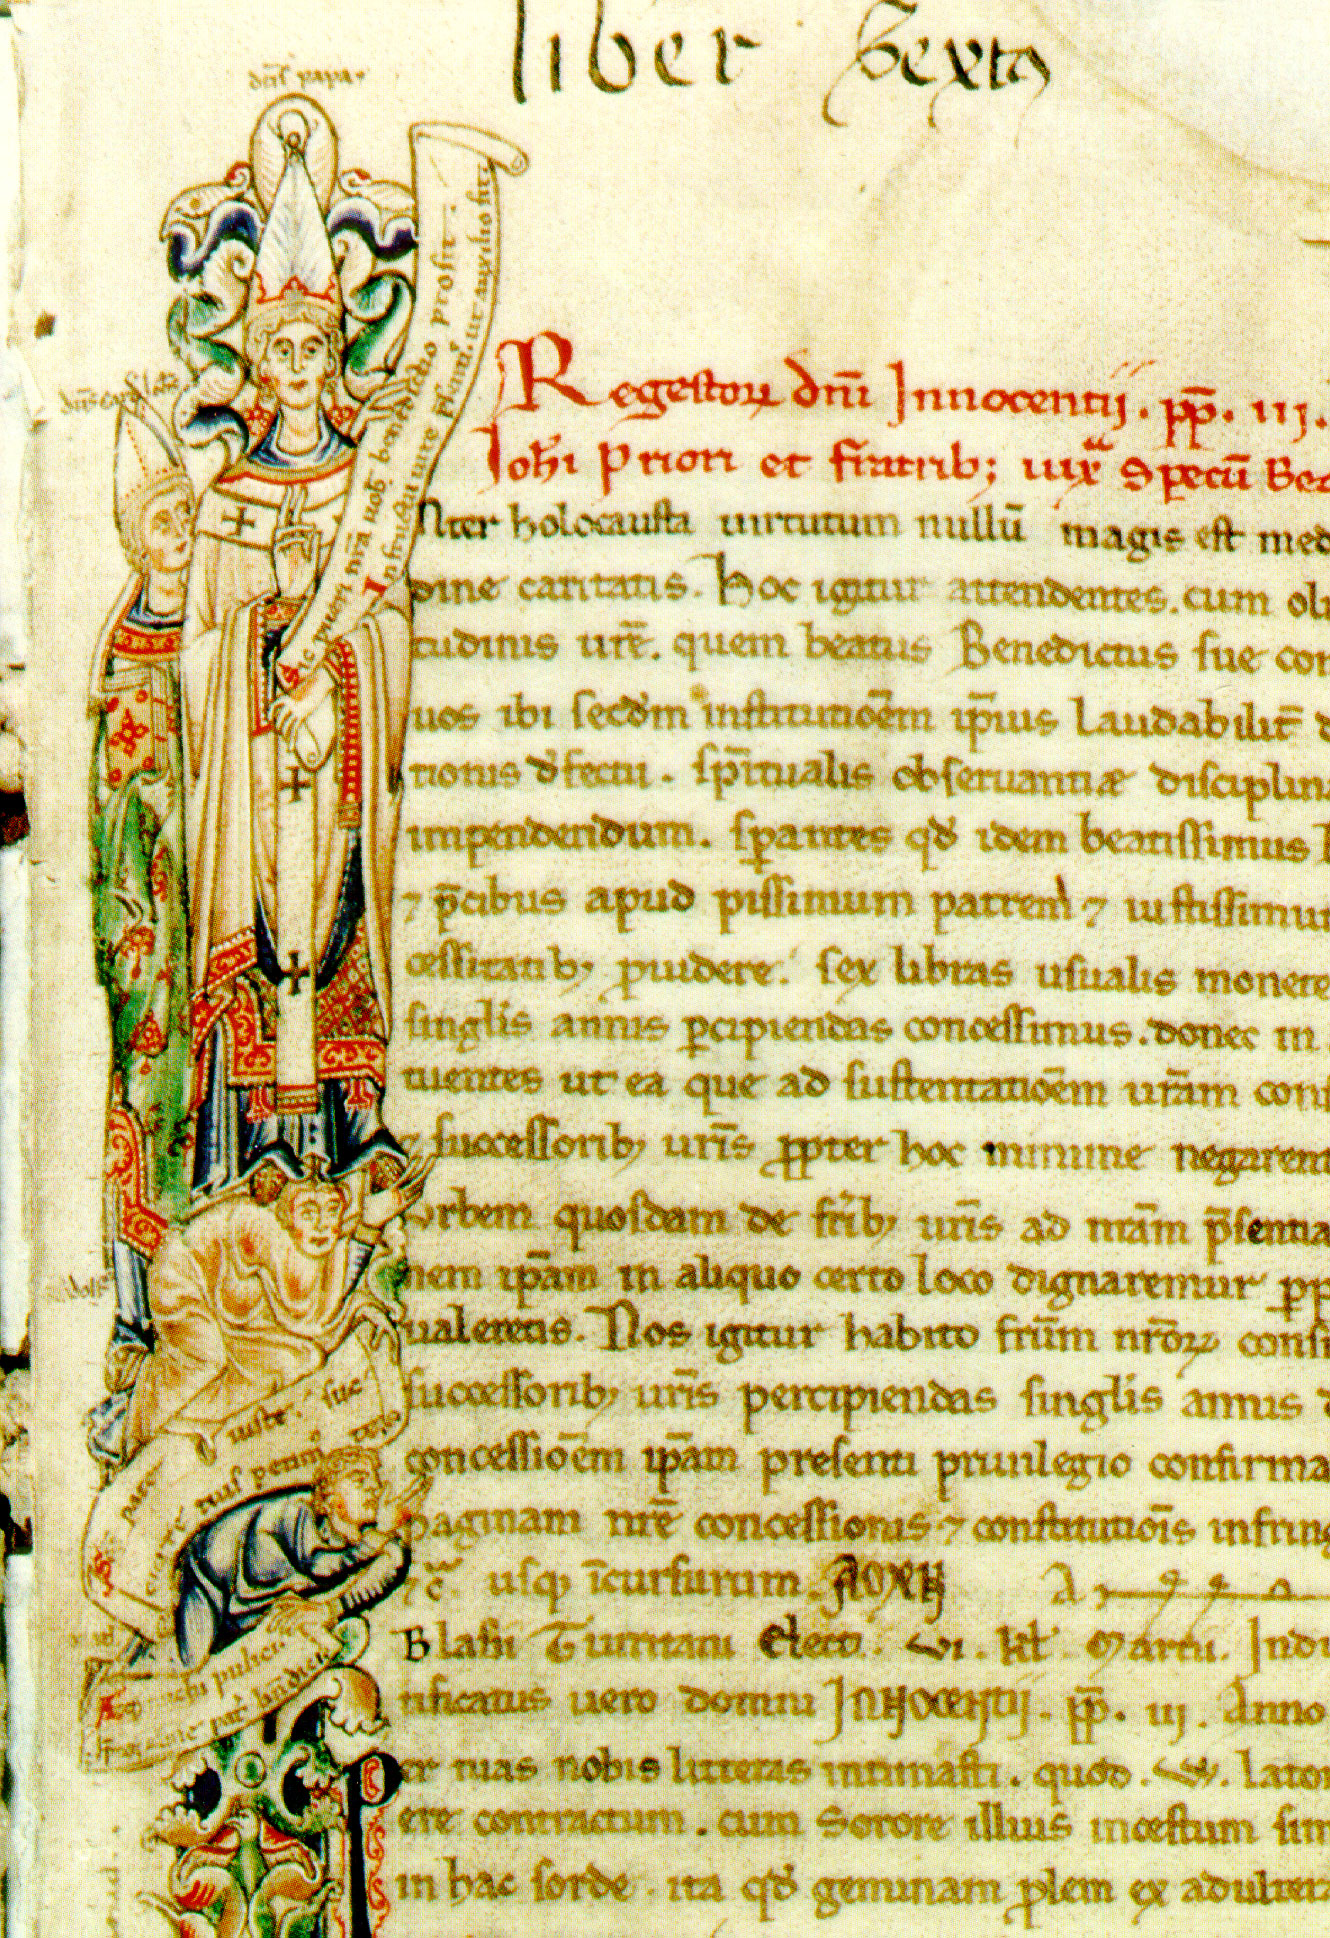 liber Sextꝯ
dns papa
Regestoꝝ dnī Innocentij. pp̄. iij.
Joħi Priori et fratrib;
Inter holocausta uirtutum nullū magis est med
dine caritatis. Hoc igitur attendentes. cum oli
tudinis urē. quem beatus Benedictus sue con
uos ibi secdm institutiōem ip̄ius laudabilit̄ d
tionis defectu. sp̄itualis obseruantiæ disciplina
impendendum. sp̄antes qđ idem beatissimus
⁊ p̄cibus apud piissimum patrem ⁊ iustissimum
cessitatibꝫ prouidere. sex libras usualis monete
singłis annis p̱cipiendas concessimus. donec in
tuentes ut ea que ad sustentatiōem ur̄am cons
⁊ successoribꝫ ur̄is ꝓpter hoc minime negarent
Vrbem quosdam de fr̄ibꝫ ur̄is ad nr̄am p̄sentia
nem ip̄am in aliquo certo loco dignaremur
ualeretis. Nos igitur habito fr̄um nr̄oꝝ consi
successoribꝫ ur̄is percipiendas singłis annis
concessiōem ip̄am presenti priuilegio confirma
paginam nr̄e concessionis ⁊ constitutiōis infring
usqꝫ īcursurum.
Blasii Turritani Electo. vi. kł. Martii. Indi
tificatus uero domni INNocentij. pp̄. iij. Anno
er tuas nobis litteras intimasti. quod. W. lator
ere contractum. cum Sorore illius incestum sim
in hac sorde. ita qđ geminam ꝓlem ex adulteri
Sic priori nr̄a uob benedictio prosit.